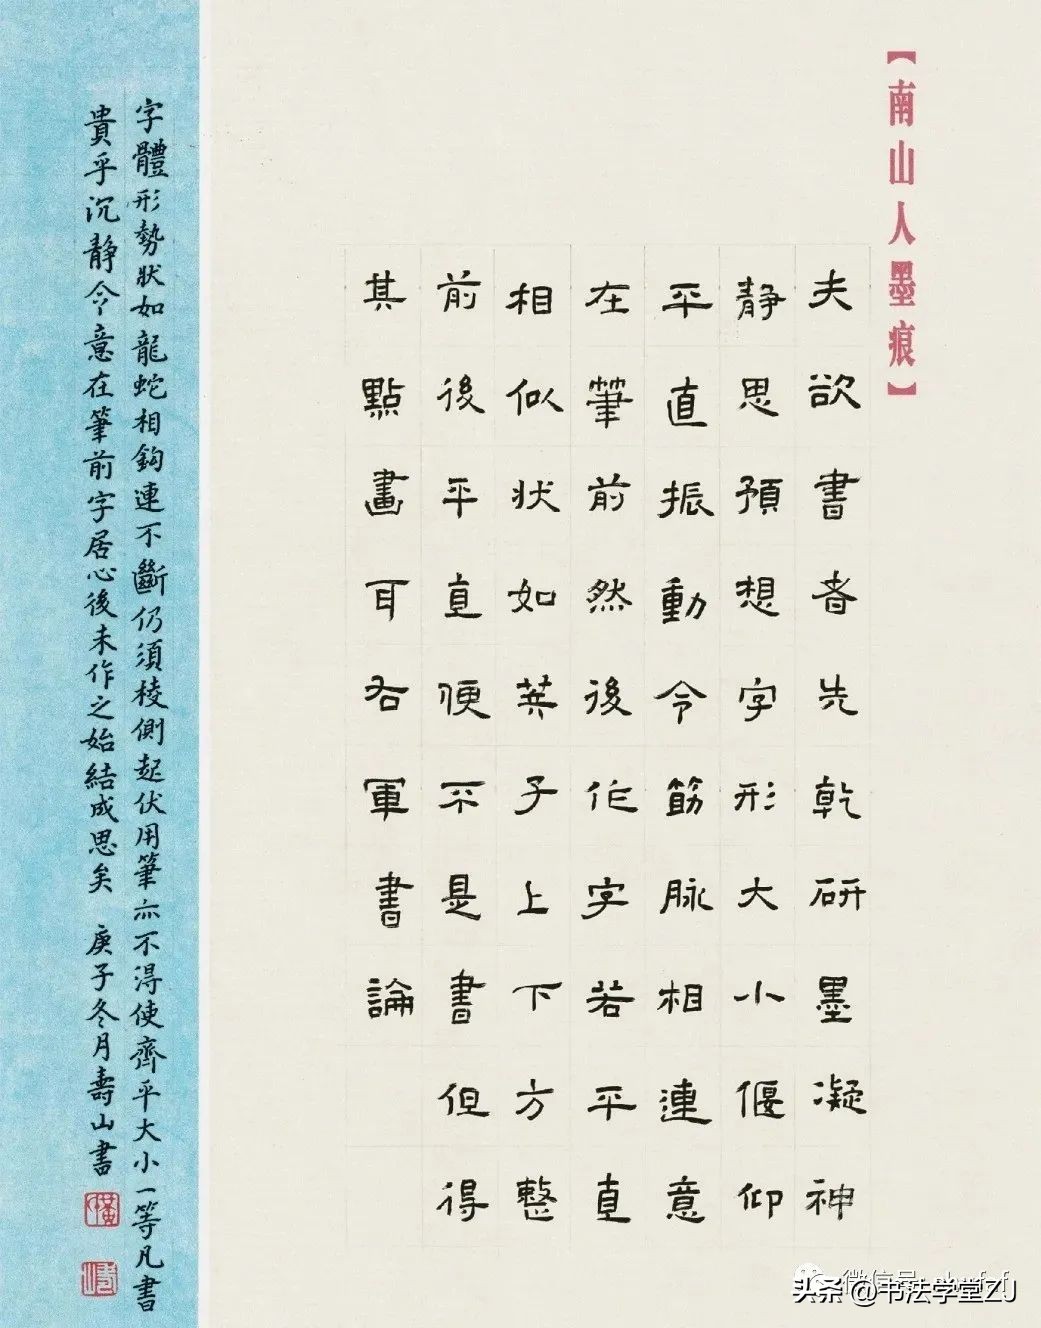 【南山人墨痕】
夫欲書者先乾研墨凝神
静思預想字形大小偃仰
平直振動令筋脉相連意
在筆前然後作字若平直
相似状如筭子上下方整
前後平直便不是書但得
其點畫耳右軍書論
字體形勢狀如龍蛇相鈎連不斷仍須棱側起伏用筆亦不得使齊平大小一等凡書
貴乎沉静令意在筆前字居心後未作之始結成思矣 庚子冬月壽山書
头条 @书法学堂ZJ